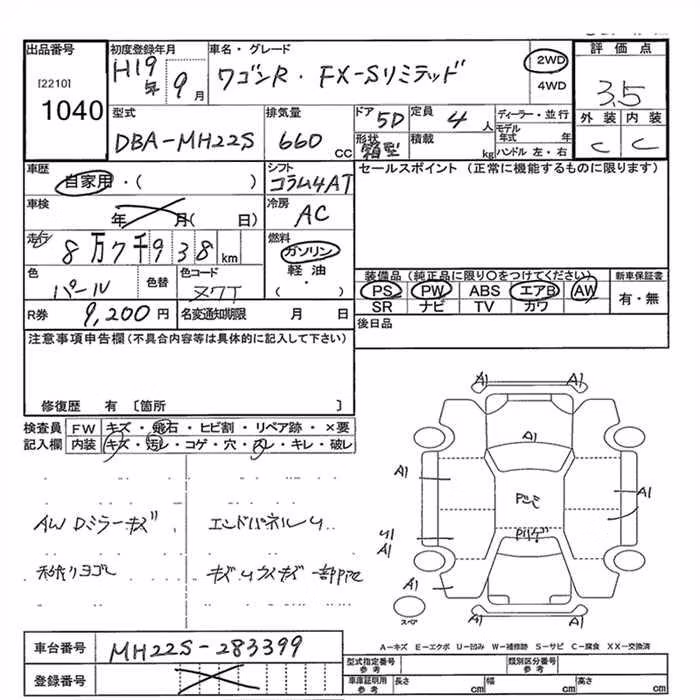 出品番号 初度登録年月 車名・グレード 評価点
[2210] H19年 9月 ワゴンR・FX-Sリミテッド 2WD 3.5
1040 4WD
外装 内装
C C
型式 排気量 ドア 5D 定員 4人 ディーラー・並行
DBA-MH22S 660cc 形状 箱型 積載 kg モデル年式 年
ハンドル 左・右
車歴 シフト セールスポイント (正常に機能するものに限ります)
自家用・( ) コラム4AT
車検 年 月( 日) 冷房 AC
走行 8万7千938km 燃料 ガソリン
軽油
・
( )
色 パール 色替 色コード
装備品 (純正品に限り〇をつけてください) 新車保証書
PS PW ABS エアB AW 有・無
SR ナビ TV カワ
R券 9,200円 名変通知期限 月 日 後日品
注意事項申告欄(不具合内容等は具体的に記入して下さい)
修復歴 有 〔箇所 〕
検査員 FW キズ・飛石・ヒビ割・リペア跡・×要
記入欄 内装 キズ・汚レ・コゲ・穴・スレ・キレ・破レ
AW Dミラーキズ エンドパネルU
キズUウスキズ一部
A1 A1
A1
A1 A1
U1
A1
A1
スペア
A-キズ E-エクボ U-凹み W-補修跡 S-サビ C-腐食 XX-交換済
車台番号 MH22S-283399
登録番号
型式指定番号参考 類別区分番号参考
車庫証明用参考 長さ cm 幅 cm 高さ cm